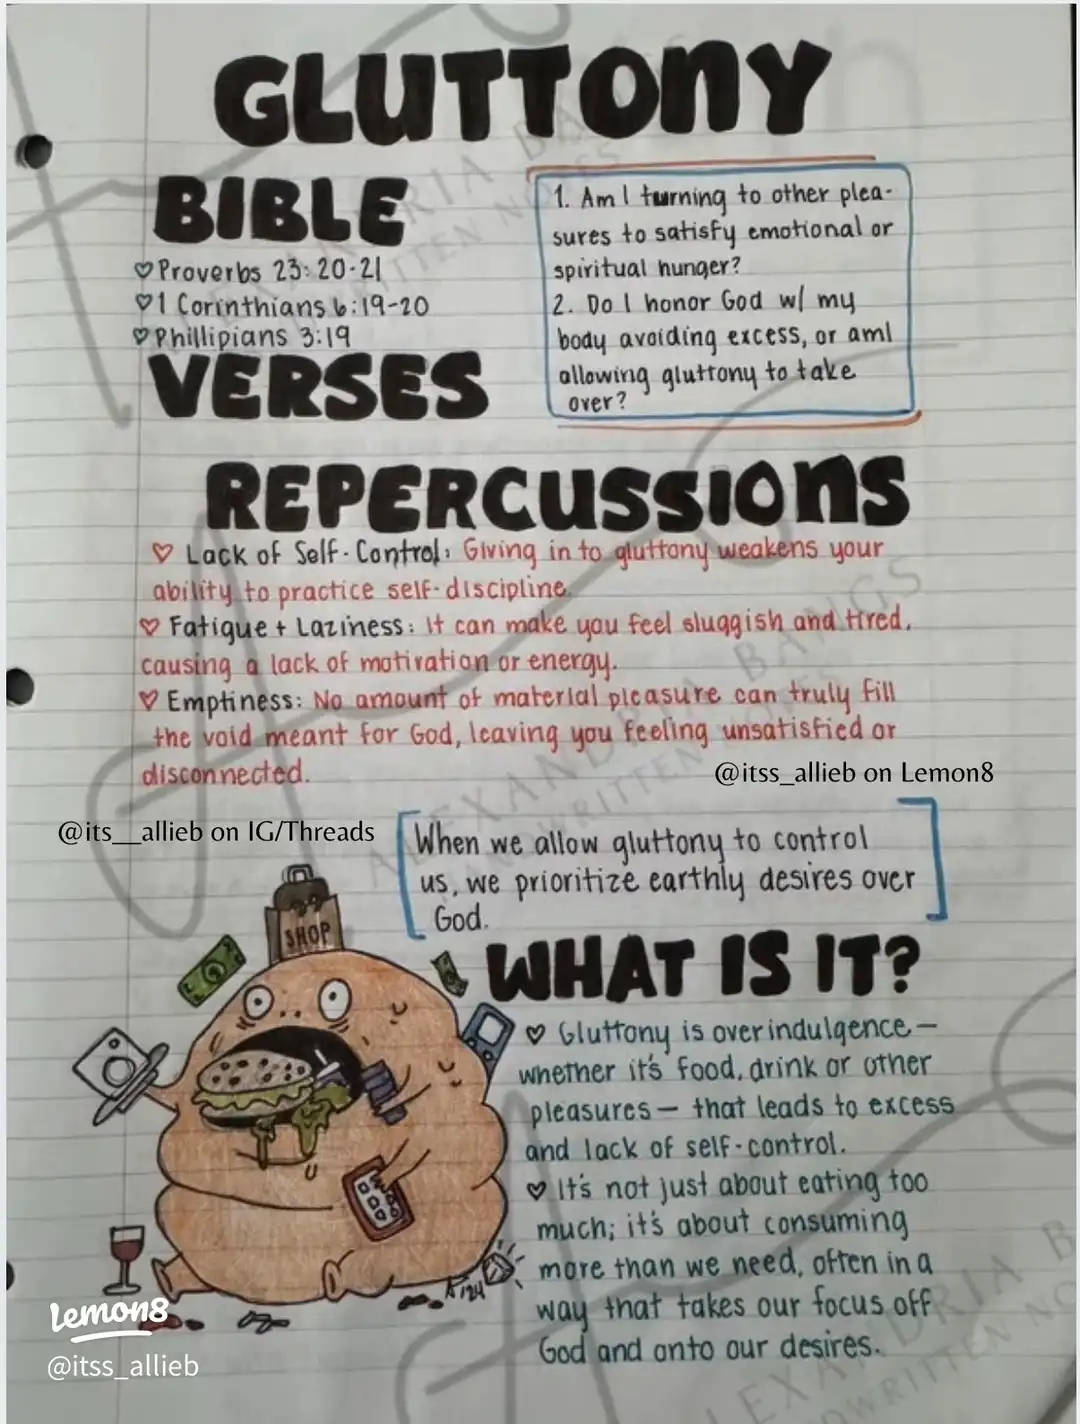 GLUTTONY
BIBLE
♡Proverbs 23:20-21
♡1 Corinthians 6:19-20
♡Phillipians 3:19
VERSES
1. Am I turning to other plea-
sures to satisfy emotional or
spiritual hunger?
2. Do I honor God w/ my
body avoiding excess, or am I
allowing gluttony to take
over?
REPERCUSSIONS
♡ Lack of Self-Control: Giving in to gluttony weakens your
ability to practice self-discipline.
♡ Fatigue + Laziness: It can make you feel sluggish and tired,
causing a lack of motivation or energy.
♡ Emptiness: No amount of material pleasure can truly fill
the void meant for God, leaving you feeling unsatisfied or
disconnected.
@itss_allieb on Lemon8
@its__allieb on IG/Threads
When we allow gluttony to control
us, we prioritize earthly desires over
God.
SHOP
WHAT IS IT?
♡ Gluttony is overindulgence—
whether it's food, drink or other
pleasures— that leads to excess
and lack of self-control.
♡ It's not just about eating too
much; it's about consuming
more than we need, often in a
way that takes our focus off
God and onto our desires.
Lemon8
@itss_allieb
ALEXANDRIA BANGS
HANDWRITTEN NOTES